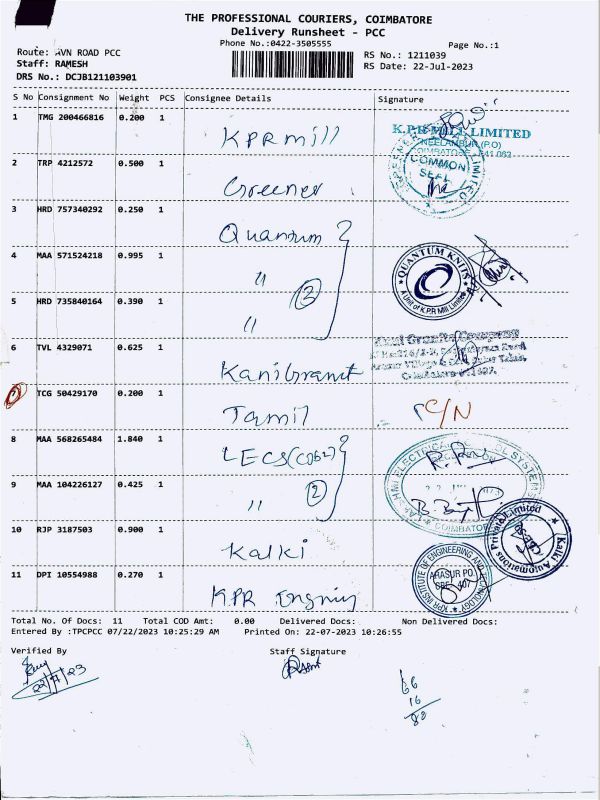 THE PROFESSIONAL COURIERS, COIMBATORE
Delivery Runsheet - PCC
Phone No.:0422-3505555
Page No.:1
Route: AVN ROAD PCC
RS No.: 1211039
Staff: RAMESH
RS Date: 22-Jul-2023
DRS No.: DCJB121103901
S No Consignment No Weight PCS Consignee Details Signature
1 TMG 200466816 0.200 1 KPR mill
K.P.R MILL LIMITED
NEELAMBUR (P.O)
COIMBATORE - 641 062
2 TRP 4212572 0.500 1 Greener
COMMON
SEAL
3 HRD 757340292 0.250 1 Quantum
4 MAA 571524218 0.995 1 "
3
QUANTUM KNITS
A Unit of K.P.R Mill Limited
5 HRD 735840164 0.390 1 "
6 TVL 4329071 0.625 1 Kani Granit
Kani Granite Company
7 TCG 50429170 0.200 1 Tamil
8 MAA 568265484 1.840 1 LECS
9 MAA 104226127 0.425 1 "
2
COIMBATORE
10 RJP 3187503 0.900 1 Kalki
Kalki Automations Private Limited
11 DPI 10554988 0.270 1 KPR
KPR INSTITUTE OF ENGINEERING AND TECHNOLOGY
ARASUR PO
CBE - 407
Total No. Of Docs: 11 Total COD Amt: 0.00 Delivered Docs: Non Delivered Docs:
Entered By :TPCPCC 07/22/2023 10:25:29 AM Printed On: 22-07-2023 10:26:55
Verified By Staff Signature
66
16
82